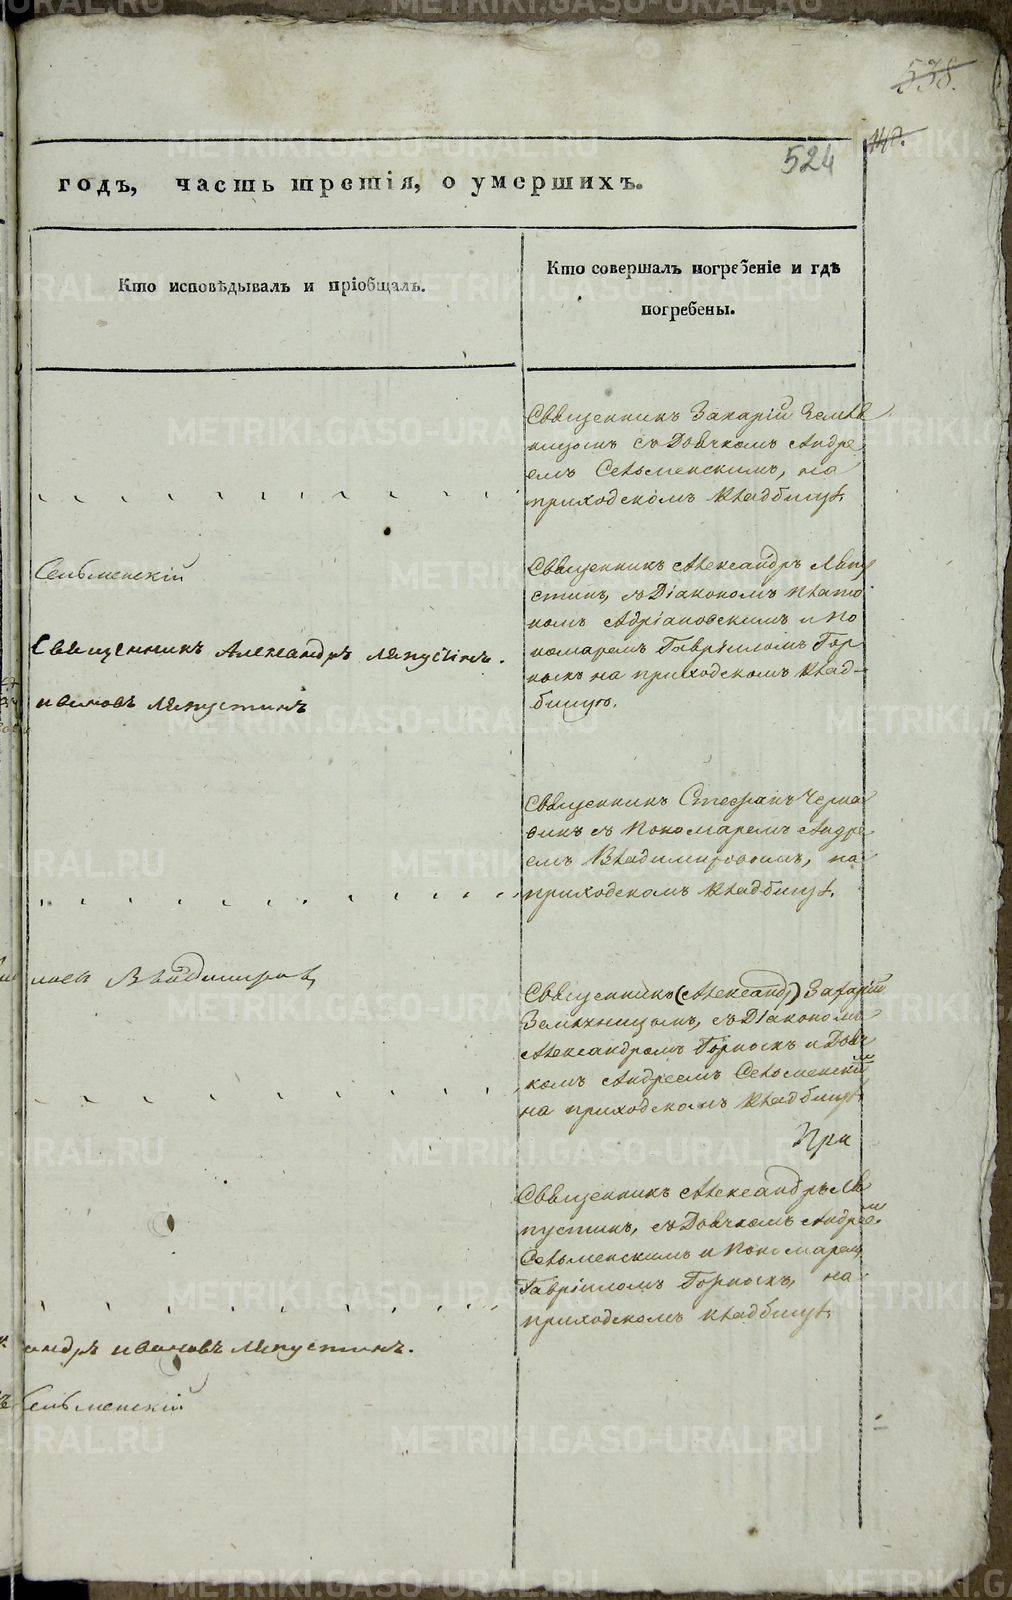 538.
524
годъ, часть третія, о умершихъ.
Кто исповѣдывалъ и пріобщалъ.
Кто совершалъ погребеніе и гдѣ
погребены.
Священникъ Захарій Земля
ницынъ съ Дьячкомъ Андре
емъ Сельменскимъ, на
приходскомъ кладбищѣ.
Сельменскій
Священникъ Александръ Ляпустинъ.
ивановъ Ляпустинъ
Священникъ Александръ Ляпу
стинъ, съ Діакономъ Плато
номъ Адріановскимъ и По
номаремъ Гавріиломъ Гор
на приходскомъ клад-
бищѣ.
Священникъ Стефанъ Черна
винъ съ Пономаремъ Андре
емъ Владимировымъ, на
приходскомъ кладбищѣ.
Владимировъ
Священникъ (Александръ) Захарій
Земляницынъ, съ Діакономъ
Александромъ и Дьяч
комъ Андреемъ Сельменским
на приходскомъ кладбищѣ.
При
Священникъ Александръ Ля
пустинъ, съ Дьячкомъ Андреем
Сельменскимъ и Пономарем
Гавріиломъ на
приходскомъ кладбищѣ.
андръ ивановъ Ляпустинъ.
Сельменскій
METRIKI.GASO-URAL.RU